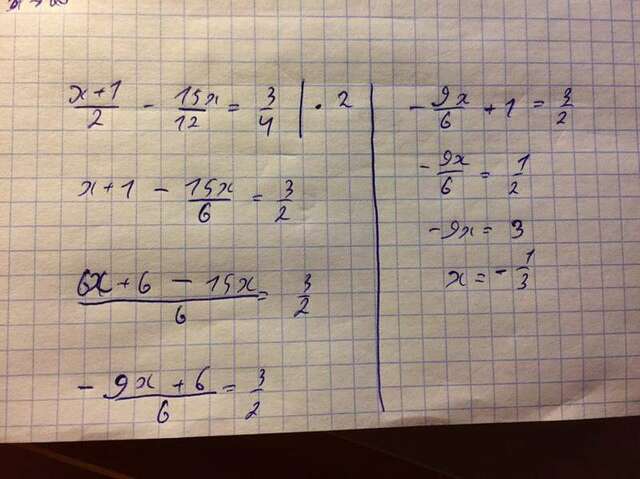 (x+1)/2 - 15x/12 = 3/4 | · 2
x+1 - 15x/6 = 3/2
(6x+6 - 15x)/6 = 3/2
-(9x+6)/6 = 3/2
-9x/6 + 1 = 3/2
-9x/6 = 1/2
-9x = 3
x = -1/3